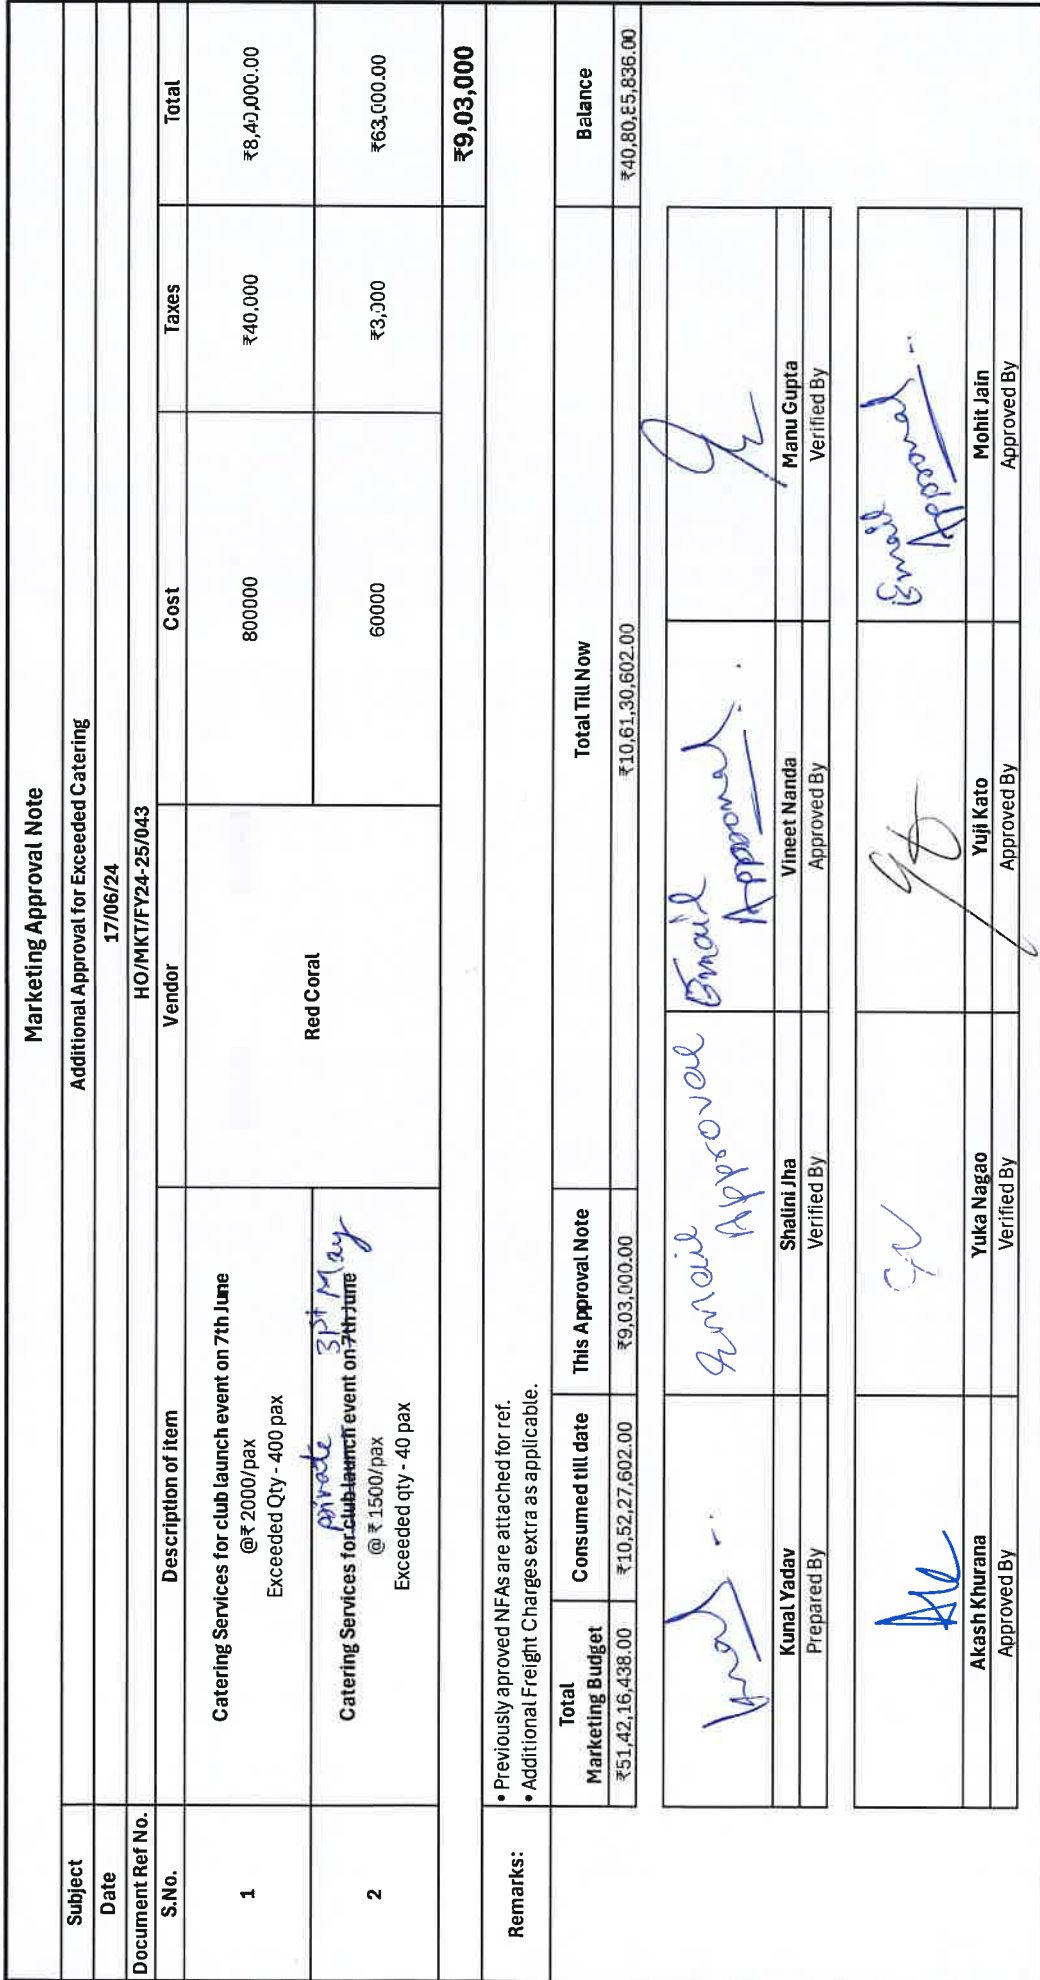 Marketing Approval Note
Subject Additional Approval for Exceeded Catering
Date 17/06/24
Document Ref No. HO/MKT/FY24-25/043
S.No. Description of item Vendor Cost Taxes Total
1 Catering Services for club launch event on 7th June Red Coral 800000 ₹40,000 ₹8,40,000.00
@₹ 2000/pax
Exceeded Qty - 400 pax
private 31st May
2 Catering Services for club launch event on 7th June 60000 ₹3,000 ₹63,000.00
@ ₹ 1500/pax
Exceeded qty - 40 pax
₹9,03,000
Remarks:
• Previously aproved NFAs are attached for ref.
• Additional Freight Charges extra as applicable.
Total Marketing Budget Consumed till date This Approval Note Total Till Now Balance
₹51,42,16,438.00 ₹10,52,27,602.00 ₹9,03,000.00 ₹10,61,30,602.00 ₹40,80,85,836.00
Email Approval Email Approval
Kunal Yadav Shalini Jha Vineet Nanda Manu Gupta
Prepared By Verified By Approved By Verified By
Email Approval
Akash Khurana Yuka Nagao Yuji Kato Mohit Jain
Approved By Verified By Approved By Approved By